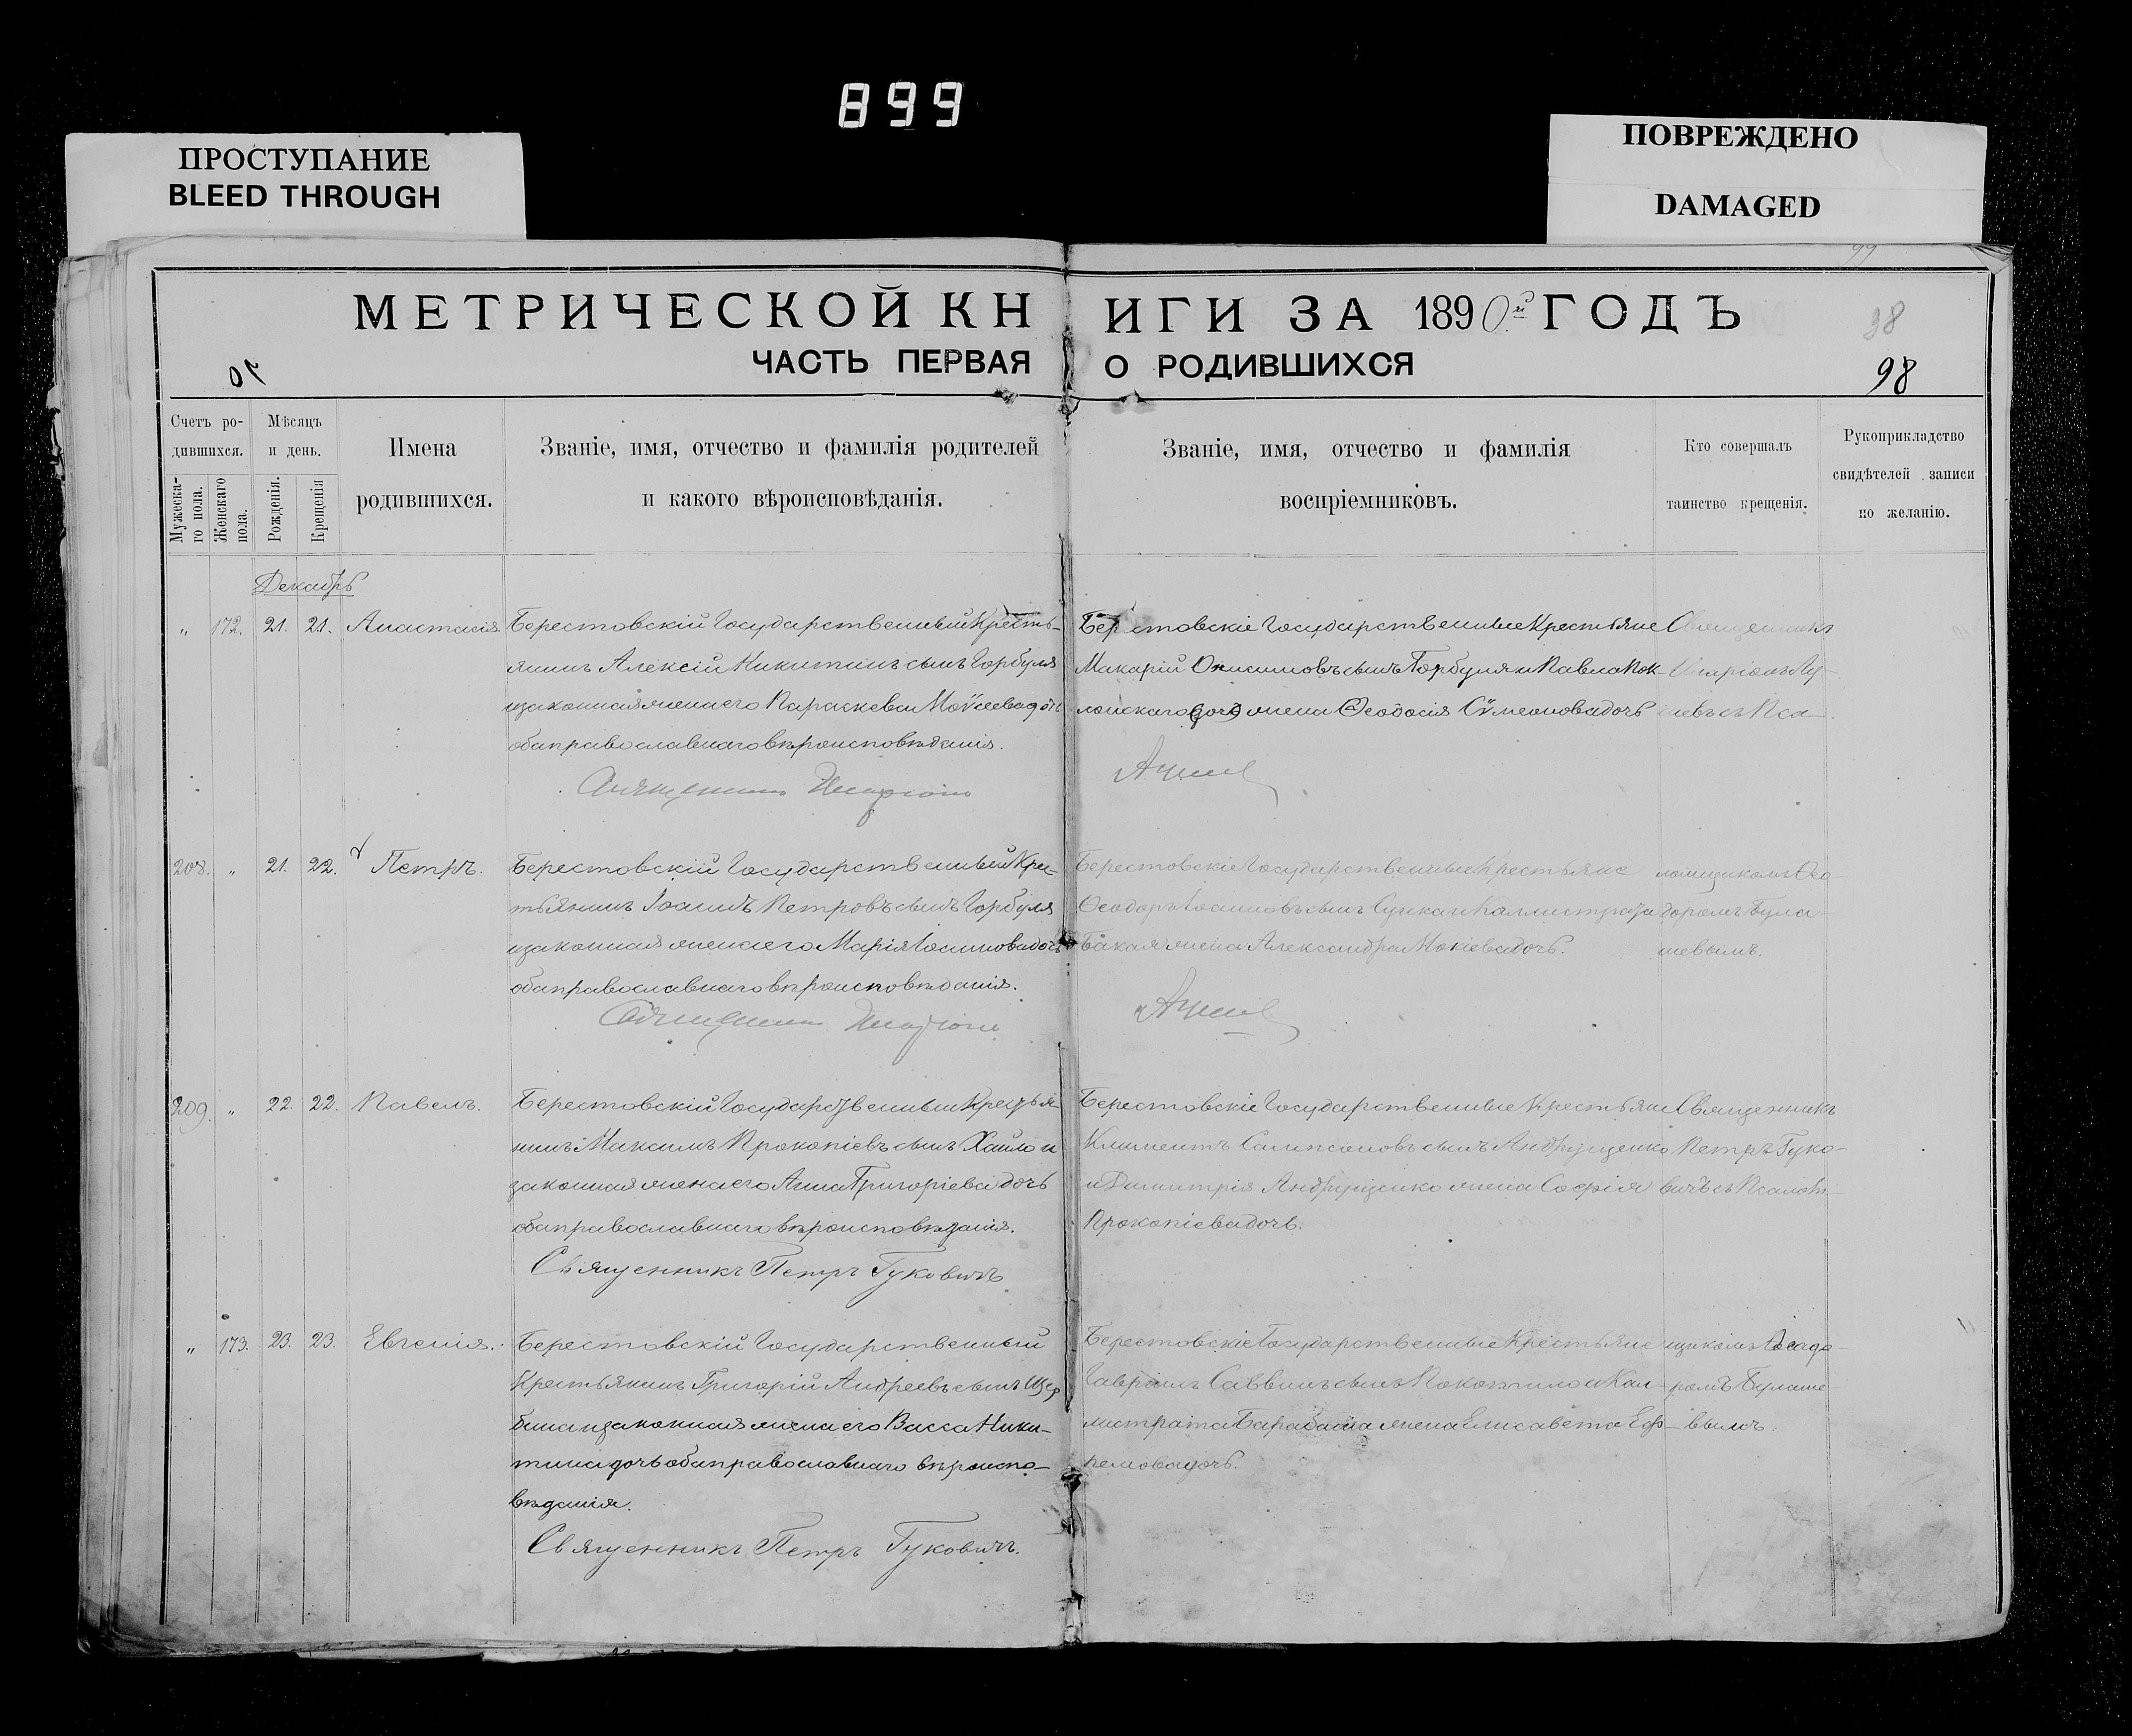 899
ПРОСТУПАНИЕ
BLEED THROUGH
ПОВРЕЖДЕНО
DAMAGED
МЕТРИЧЕСКОЙ КНИГИ ЗА 1890й ГОДЪ
98
ЧАСТЬ ПЕРВАЯ О РОДИВШИХСЯ
98
Счетъ ро-
дившихся.
Мужеска-
го пола.
Женскаго
пола.
Мѣсяцъ
и день.
Рожденія.
Крещенія
Имена
родившихся.
Званіе, имя, отчество и фамилія родителей
и какого вѣроисповѣданія.
Званіе, имя, отчество и фамилія
воспріемниковъ.
Кто совершалъ
таинство крещенія.
Рукоприкладство
свидѣтелей записи
по желанію.
Декабрь
" 172. 21. 21. Анастасія
Берестовскій Государственный Кресть-
янинъ Алексій Никитинъ сынъ Горбуля
и законная жена его Параскева Моѵсеева дочь
оба православнаго вѣроисповѣданія.
Священникъ
Берестовскіе Государственные Крестьяне
Макарій Онисимовъ сынъ Горбуля и Павла Пок-
лонскаго жена Ѳеодосія Сѵмеонова дочь
Священникъ
208. " 21. 22. Петръ.
Берестовскій Государственный Крес-
тьянинъ Іоаннъ Петровъ сынъ Горбуля
и законная жена его Марія Іоаннова дочь
оба православнаго вѣроисповѣданія.
Священникъ
Берестовскіе Государственные Крестьяне
Ѳеодоръ Іоанновъ сынъ и Каллистрата
Бакая жена Александра Мокіева дочь.
ломщикомъ Ѳео-
доромъ Була-
шевымъ.
209. " 22. 22. Павелъ.
Берестовскій Государственный Крестья-
нинъ Максимъ Прокопіевъ сынъ Хайло и
законная жена его Анна Григоріева дочь
оба православнаго вѣроисповѣданія.
Священникъ Петръ Гуковичъ
Берестовскіе Государственные Крестьяне
Климентъ Сампсоновъ сынъ Андрущенко
и Димитрія Андрущенко жена Софія
Прокопіева дочь.
Священникъ
Петръ Гуко-
вичъ съ Псалом-
" 173. 23. 23. Евгенія.
Берестовскій Государственный
Крестьянинъ Григорій Андреевъ сынъ Щер
бина и законная жена его Васса Ники-
тина дочь оба православнаго вѣроиспо-
вѣданія.
Священникъ Петръ Гуковичъ.
Берестовскіе Государственные Крестьяне
Гавріилъ Саввинъ сынъ и Кал-
листрата Барабаша жена Елисавета Еф-
ремова дочь.
щикомъ Ѳеодо-
ромъ Булаше-
вымъ.